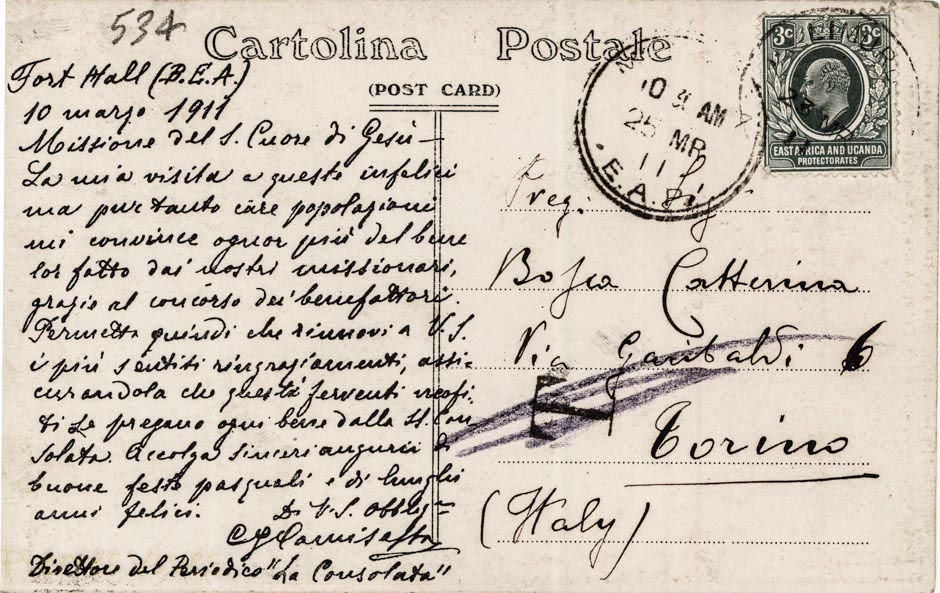 534
Cartolina Postale
(POST CARD)
Fort Hall (B.E.A.)
10 marzo 1911
Missione del S. Cuore di Gesù —
La mia visita a queste infelici
ma pur tanto care popolazioni
mi convince ognor più del bene
lor fatto dai nostri missionari,
grazie al concorso dei benefattori.
Permetta quindi che rinnovi a V. S.
i più sentiti ringraziamenti, assi-
curandola che questi ferventi neofi-
ti Le pregano ogni bene dalla SS. Con
solata. Accolga sinceri augurii di
buone feste pasquali e di lunghi
anni felici. Di V. S. Obbl.
Camisassa
Direttore del Periodico "La Consolata"
3c 3c
EAST AFRICA AND UGANDA
PROTECTORATES
10 AM
25 MR
11
E.A.P.
Preg. Sig
Bosca Catterina
Via Garibaldi 6
T
Torino
(Italy)